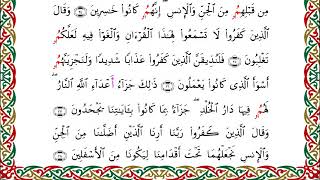 مِن قَبْلِهِم مِّنَ ٱلْجِنِّ وَٱلْإِنسِ ۖ إِنَّهُمْ كَانُوا۟ خَٰسِرِينَ ۝ وَقَالَ
ٱلَّذِينَ كَفَرُوا۟ لَا تَسْمَعُوا۟ لِهَٰذَا ٱلْقُرْءَانِ وَٱلْغَوْا۟ فِيهِ لَعَلَّكُمْ
تَغْلِبُونَ ۝ فَلَنُذِيقَنَّ ٱلَّذِينَ كَفَرُوا۟ عَذَابًا شَدِيدًا وَلَنَجْزِيَنَّهُمْ
أَسْوَأَ ٱلَّذِى كَانُوا۟ يَعْمَلُونَ ۝ ذَٰلِكَ جَزَآءُ أَعْدَآءِ ٱللَّهِ ٱلنَّارُ ۖ
لَهُمْ فِيهَا دَارُ ٱلْخُلْدِ ۖ جَزَآءًۢ بِمَا كَانُوا۟ بِـَٔايَٰتِنَا يَجْحَدُونَ ۝
وَقَالَ ٱلَّذِينَ كَفَرُوا۟ رَبَّنَآ أَرِنَا ٱلَّذَيْنِ أَضَلَّانَا مِنَ ٱلْجِنِّ
وَٱلْإِنسِ نَجْعَلْهُمَا تَحْتَ أَقْدَامِنَا لِيَكُونَا مِنَ ٱلْأَسْفَلِينَ ۝